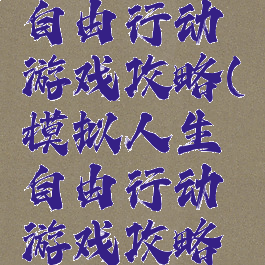 自由行动
游戏攻略(
模拟人生
自由行动
游戏攻略